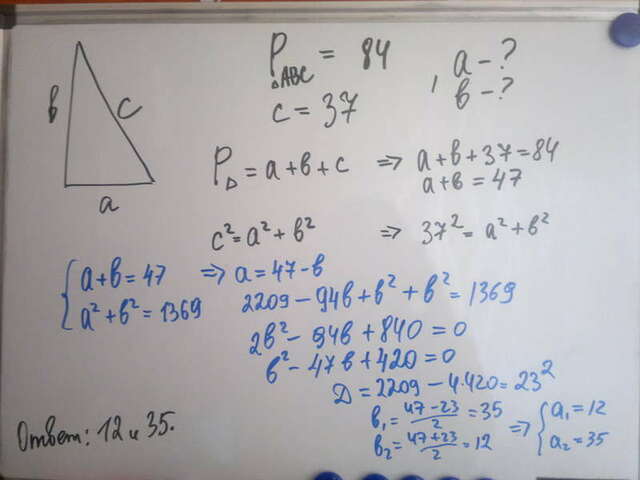 P△ABC = 84
a - ?
c = 37
, в - ?
в
c
a
P△ = a + в + c ⇒ a + в + 37 = 84
a + в = 47
c² = a² + в² ⇒ 37² = a² + в²
{ a + в = 47 ⇒ a = 47 - в
a² + в² = 1369
2209 - 94в + в² + в² = 1369
2в² - 94в + 840 = 0
в² - 47в + 420 = 0
D = 2209 - 4·420 = 23²
в₁ = (47 - 23)/2 = 35 ⇒ { a₁ = 12
в₂ = (47 + 23)/2 = 12 a₂ = 35
Ответ: 12 и 35.